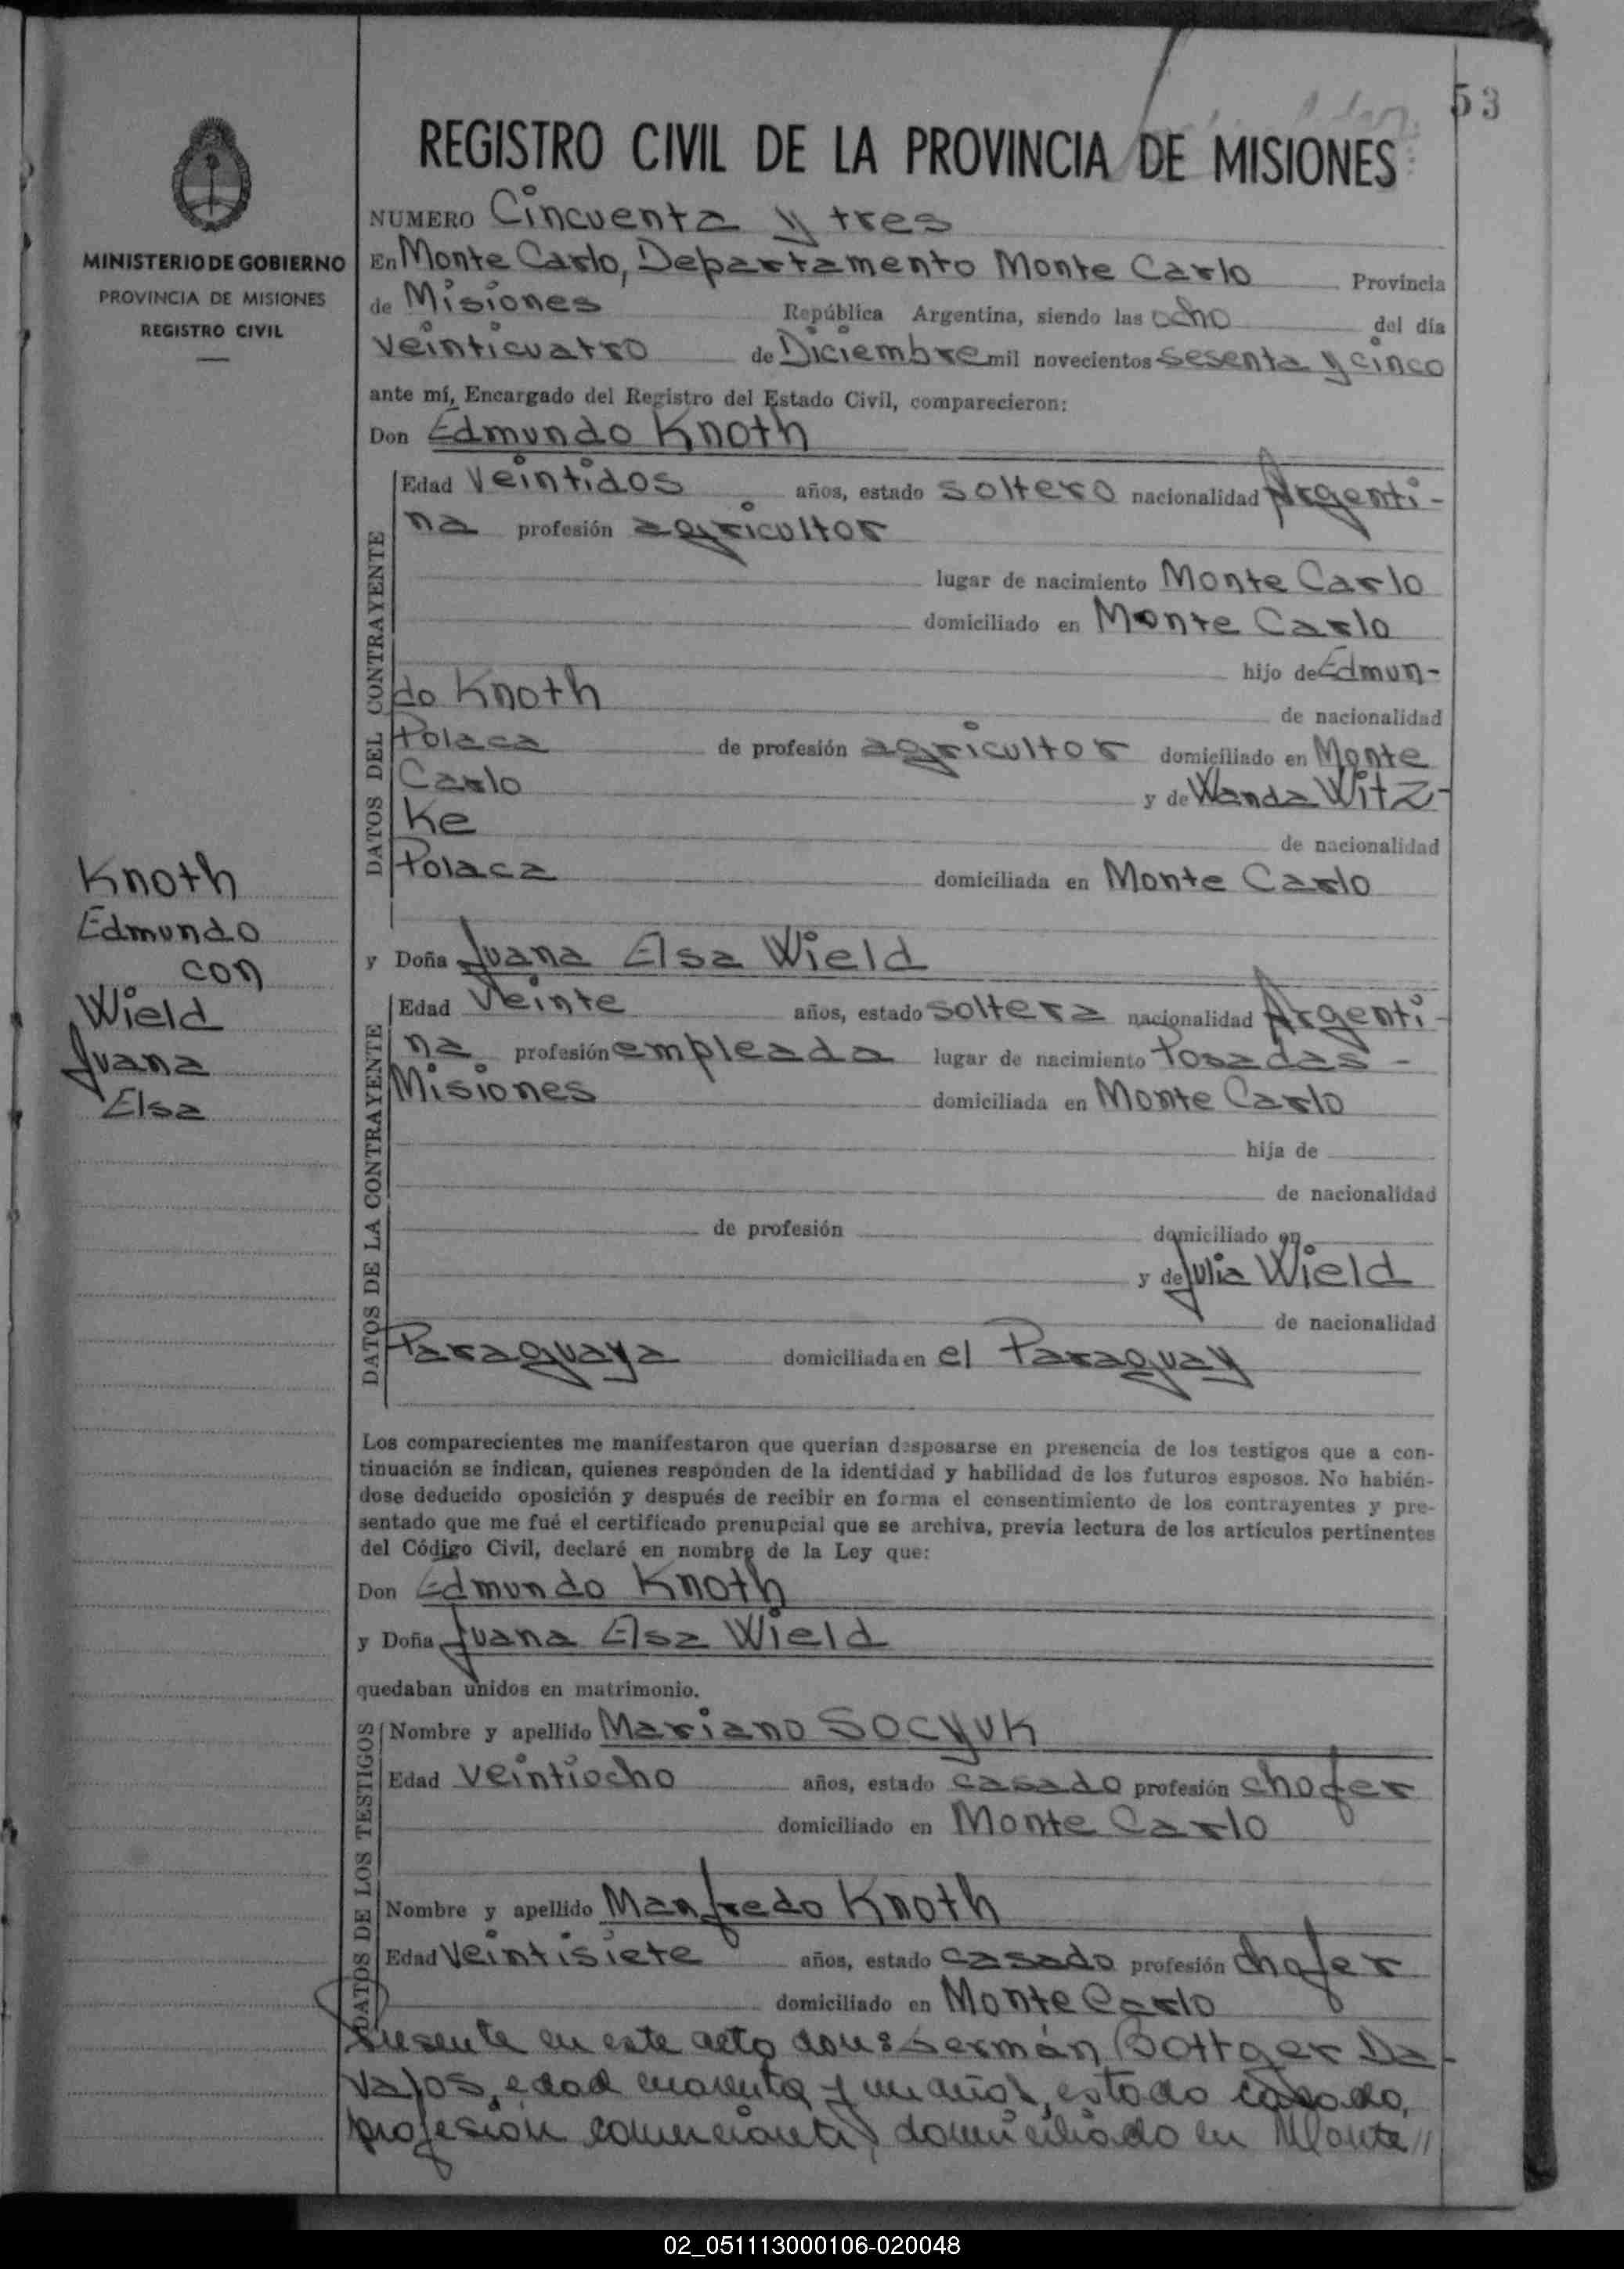 53
REGISTRO CIVIL DE LA PROVINCIA DE MISIONES
MINISTERIO DE GOBIERNO
PROVINCIA DE MISIONES
REGISTRO CIVIL
NUMERO Cincuenta y tres
En Monte Carlo, Departamento Monte Carlo Provincia
de Misiones República Argentina, siendo las ocho del día
veinticuatro de Diciembre mil novecientos sesenta y cinco
ante mí, Encargado del Registro del Estado Civil, comparecieron:
Don Edmundo Knoth
DATOS DEL CONTRAYENTE
Edad Veintidos años, estado soltero nacionalidad Argenti-
na profesión agricultor
lugar de nacimiento Monte Carlo
domiciliado en Monte Carlo
hijo de Edmun-
do Knoth
de nacionalidad
Polaca de profesión agricultor domiciliado en Monte
Carlo y de Wanda Witz-
ke
de nacionalidad
Polaca domiciliada en Monte Carlo
Knoth
Edmundo
con
Wield
Juana
Elsa
y Doña Juana Elsa Wield
DATOS DE LA CONTRAYENTE
Edad Veinte años, estado soltera nacionalidad Argenti-
na profesión empleada lugar de nacimiento Posadas -
Misiones domiciliada en Monte Carlo
hija de
de nacionalidad
de profesión domiciliado en
y de Julia Wield
de nacionalidad
Paraguaya domiciliada en el Paraguay
Los comparecientes me manifestaron que querían desposarse en presencia de los testigos que a con-
tinuación se indican, quienes responden de la identidad y habilidad de los futuros esposos. No habién-
dose deducido oposición y después de recibir en forma el consentimiento de los contrayentes y pre-
sentado que me fué el certificado prenupcial que se archiva, previa lectura de los artículos pertinentes
del Código Civil, declaré en nombre de la Ley que:
Don Edmundo Knoth
y Doña Juana Elsa Wield
quedaban unidos en matrimonio.
DATOS DE LOS TESTIGOS
Nombre y apellido Mariano Socyuk
Edad veintiocho años, estado casado profesión chofer
domiciliado en Monte Carlo
Nombre y apellido Manfredo Knoth
Edad Veintisiete años, estado casado profesión chofer
domiciliado en Monte Carlo
Presente en este acto don: Germán Bottger Da-
valos, edad cuarenta y un años, estado casado,
profesión comerciante, domiciliado en Monte //
02_051113000106-020048